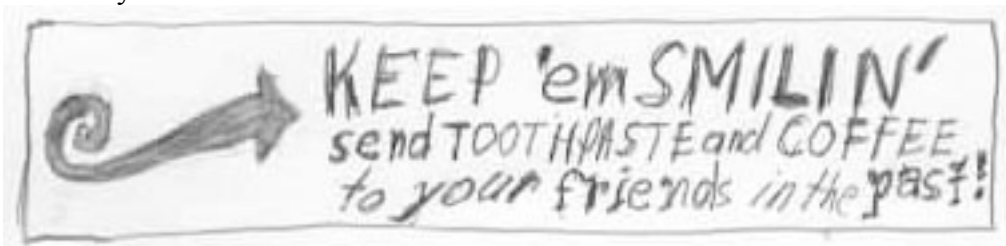 KEEP 'em SMILIN'
send TOOTHPASTE and COFFEE
to your friends in the past!